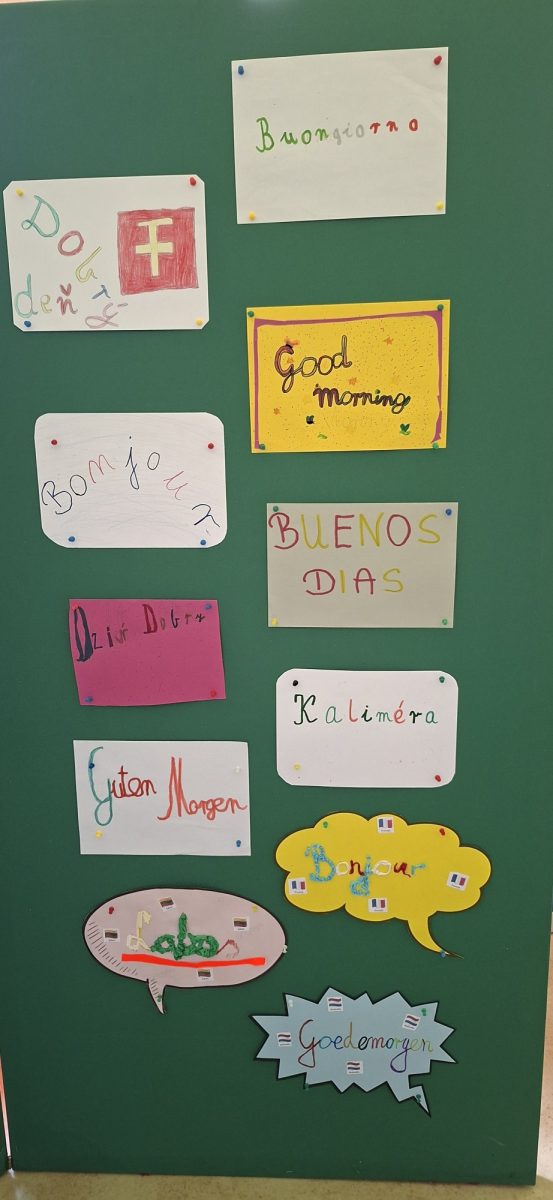 Buongiorno
Dobrý
deň
Good
Morning
Bonjour
BUENOS
DIAS
Dzień Dobry
Kaliméra
Guten Morgen
Bonjour
Labas
Goedemorgen